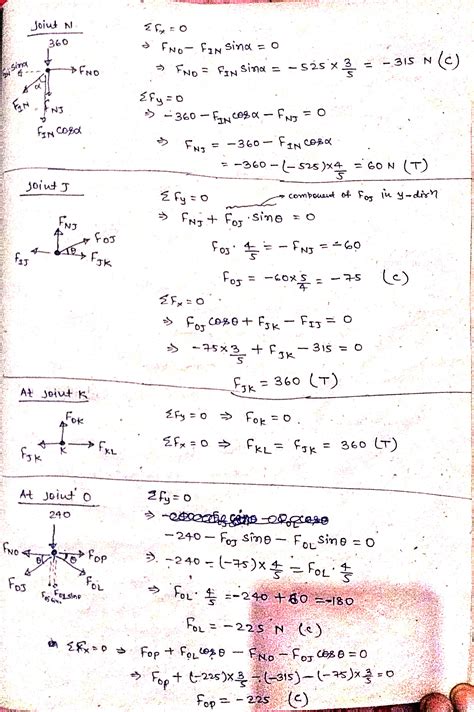 Joint N
360
F_NO
α
F_IN
F_NJ
F_IN cosα
ΣFx = 0
⇒ F_NO - F_IN sinα = 0
⇒ F_NO = F_IN sinα = -525 × 3/5 = -315 N (C)
ΣFy = 0
⇒ -360 - F_IN cosα - F_NJ = 0
⇒ F_NJ = -360 - F_IN cosα
= -360 - (-525)×4/5 = 60 N (T)
Joint J
F_NJ
F_OJ
θ
F_IJ
F_JK
ΣFy = 0
component of F_OJ in y-dirn
⇒ F_NJ + F_OJ · sinθ = 0
F_OJ · 4/5 = - F_NJ = -60
F_OJ = -60×5/4 = -75 (C)
ΣFx = 0
⇒ F_OJ cosθ + F_JK - F_IJ = 0
⇒ -75×3/5 + F_JK - 315 = 0
F_JK = 360 (T)
At joint K
F_OK
K
F_JK
F_KL
ΣFy = 0 ⇒ F_OK = 0
ΣFx = 0 ⇒ F_KL = F_JK = 360 (T)
At joint O
240
F_NO
θ
θ
F_OP
F_OJ
F_OL
ΣFy = 0
-240 - F_OJ sinθ - F_OL sinθ = 0
⇒ -240 - (-75)×4/5 = F_OL · 4/5
⇒ F_OL · 4/5 = -240 + 60 = -180
F_OL = -225 N (C)
ΣFx = 0 ⇒ F_OP + F_OL cosθ - F_NO - F_OJ cosθ = 0
⇒ F_OP + (-225)×3/5 - (-315) - (-75)×3/5 = 0
F_OP = -225 (C)